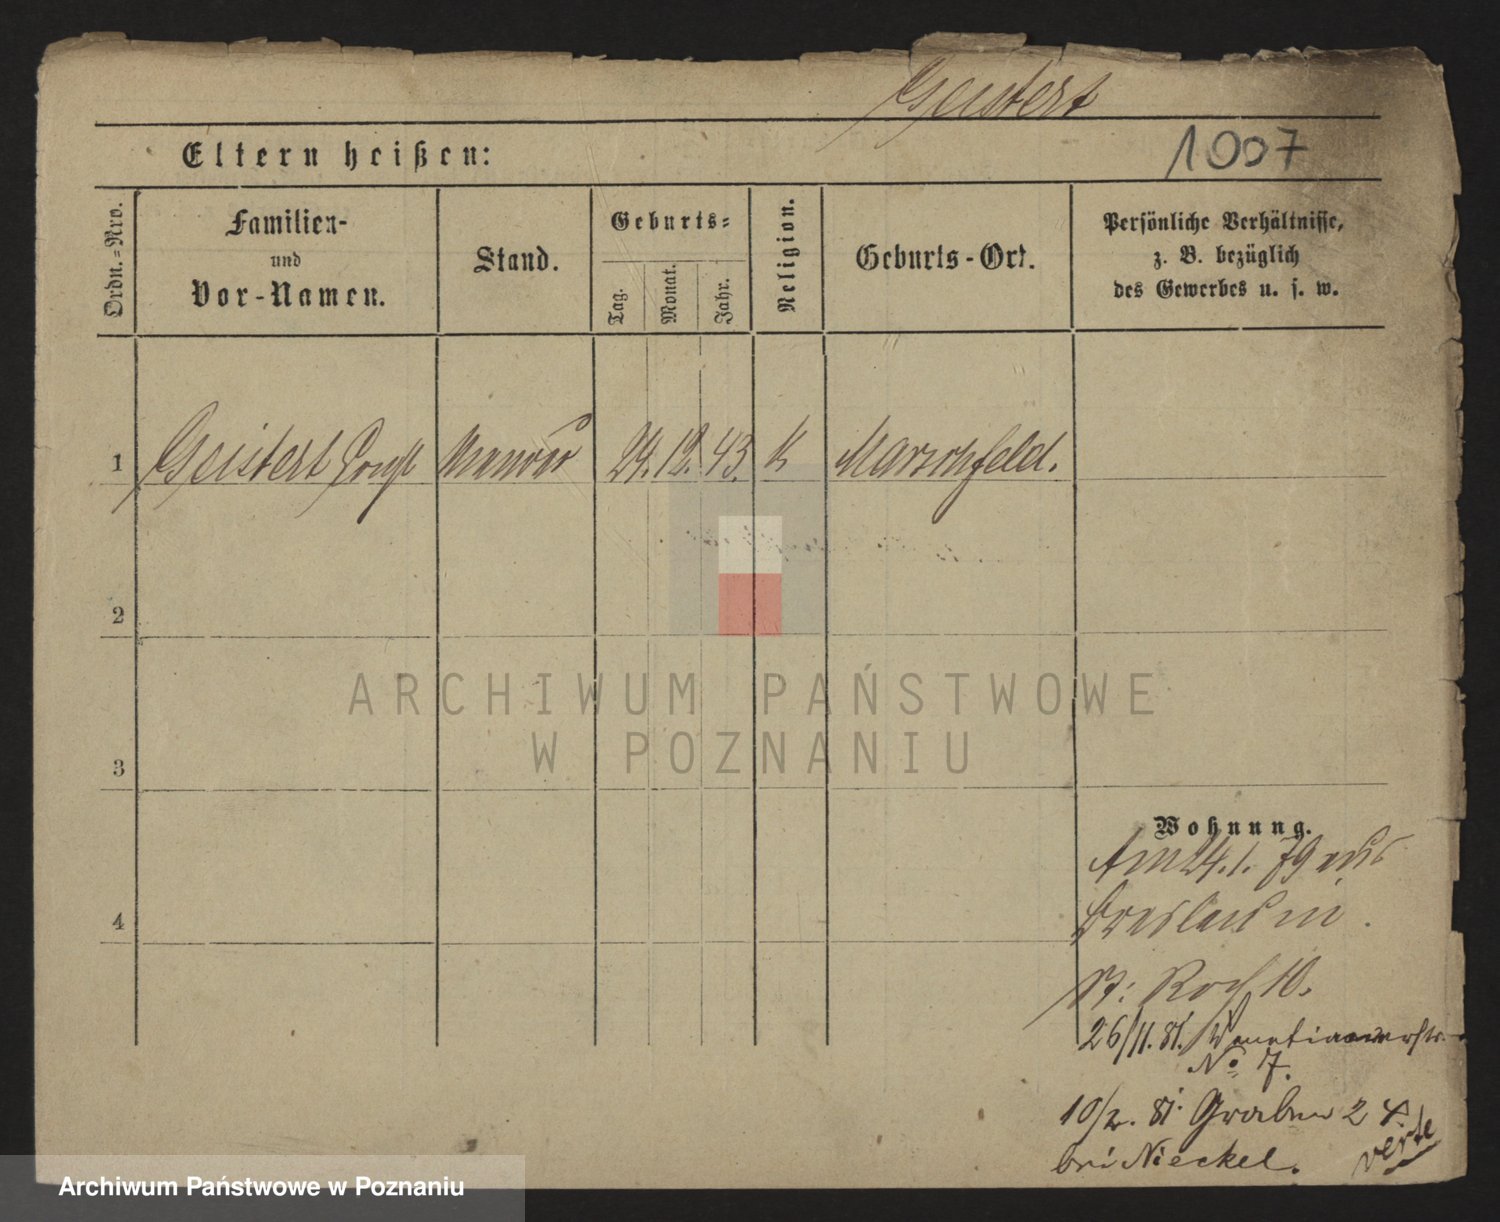 Geistert
1007
Eltern heißen:
Ordn.=Nro.
Familien-
und
Vor-Namen.
Stand.
Geburts=
Tag.
Monat.
Jahr.
Religion.
Geburts-Ort.
Persönliche Verhältnisse,
z. B. bezüglich
des Gewerbes u. s. w.
1 Geistert 24. 12. 43. k Marschfeld.
2
3
4
Wohnung.
Am 24. 1. 79 aus
Breslau in
St: Roch 10.
26/11. 81. Venetianerstr.
No 7.
10/2. 81. Graben 24
bei Nieckel.
verte
ARCHIWUM PAŃSTWOWE
W POZNANIU
Archiwum Państwowe w Poznaniu